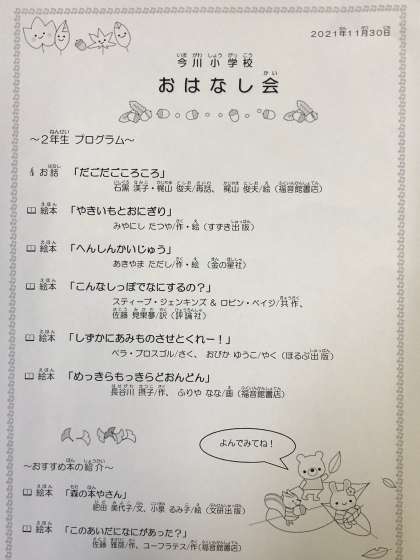 2021年11月30日
今川小学校
おはなし会
～2年生 プログラム～
お話 「だごだごころころ」
石黒 渼子・梶山 俊夫/再話、 梶山 俊夫/絵（福音館書店）
絵本 「やきいもとおにぎり」
みやにし たつや/作・絵（すずき出版）
絵本 「へんしんかいじゅう」
あきやま ただし/作・絵 （金の星社）
絵本 「こんなしっぽでなにするの？」
スティーブ・ジェンキンズ & ロビン・ペイジ/共作、
佐藤 見果夢/訳（評論社）
絵本 「しずかにあみものさせとくれー！」
ベラ・ブロスゴル/さく、 おびか ゆうこ/やく（ほるぷ出版）
絵本 「めっきらもっきらどおんどん」
長谷川 摂子/作、 ふりや なな/画（福音館書店）
よんでみてね！
～おすすめ本の紹介～
絵本 「森の本やさん」
肥田 美代子/文、小泉 るみ子/絵（文研出版）
絵本 「このあいだになにがあった？」
佐藤 雅彦/作、ユーフラテス/作（福音館書店）